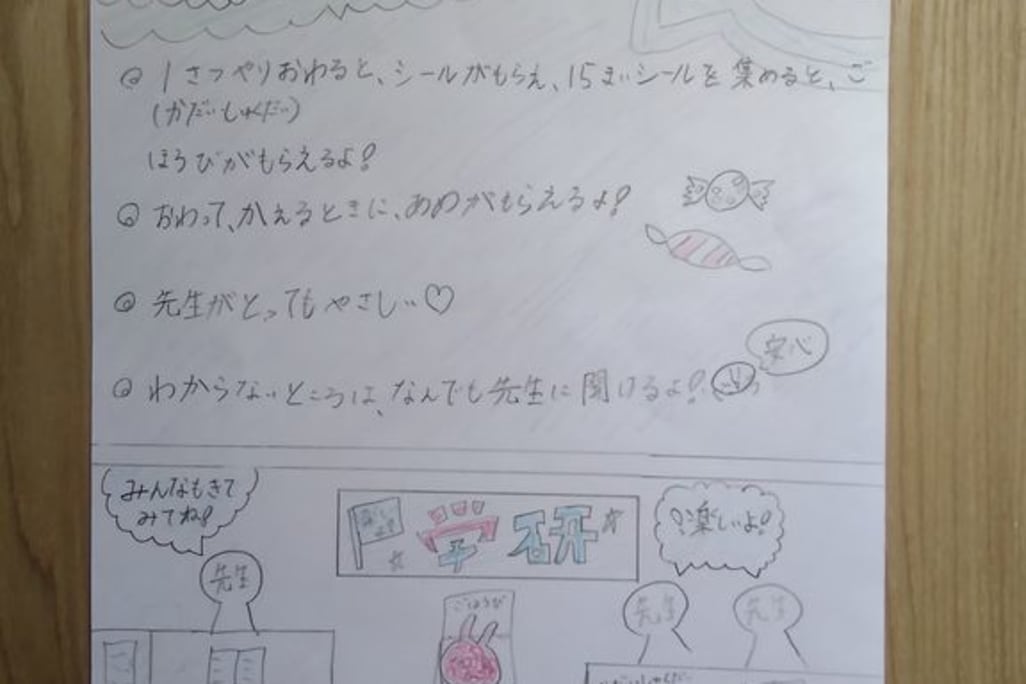 ◎ 1さつやりおわると、シールがもらえ、15まいシールを集めると、ご
(かだいしゅくだい)
ほうびがもらえるよ!
◎ おわって、かえるときに、あめがもらえるよ!
◎ 先生がとってもやさしい♡
安心
◎ わからないところは、なんでも先生に聞けるよ!
みんなもきて
みてね!
学研
楽しいよ!
先生
ごほうび
先生
先生